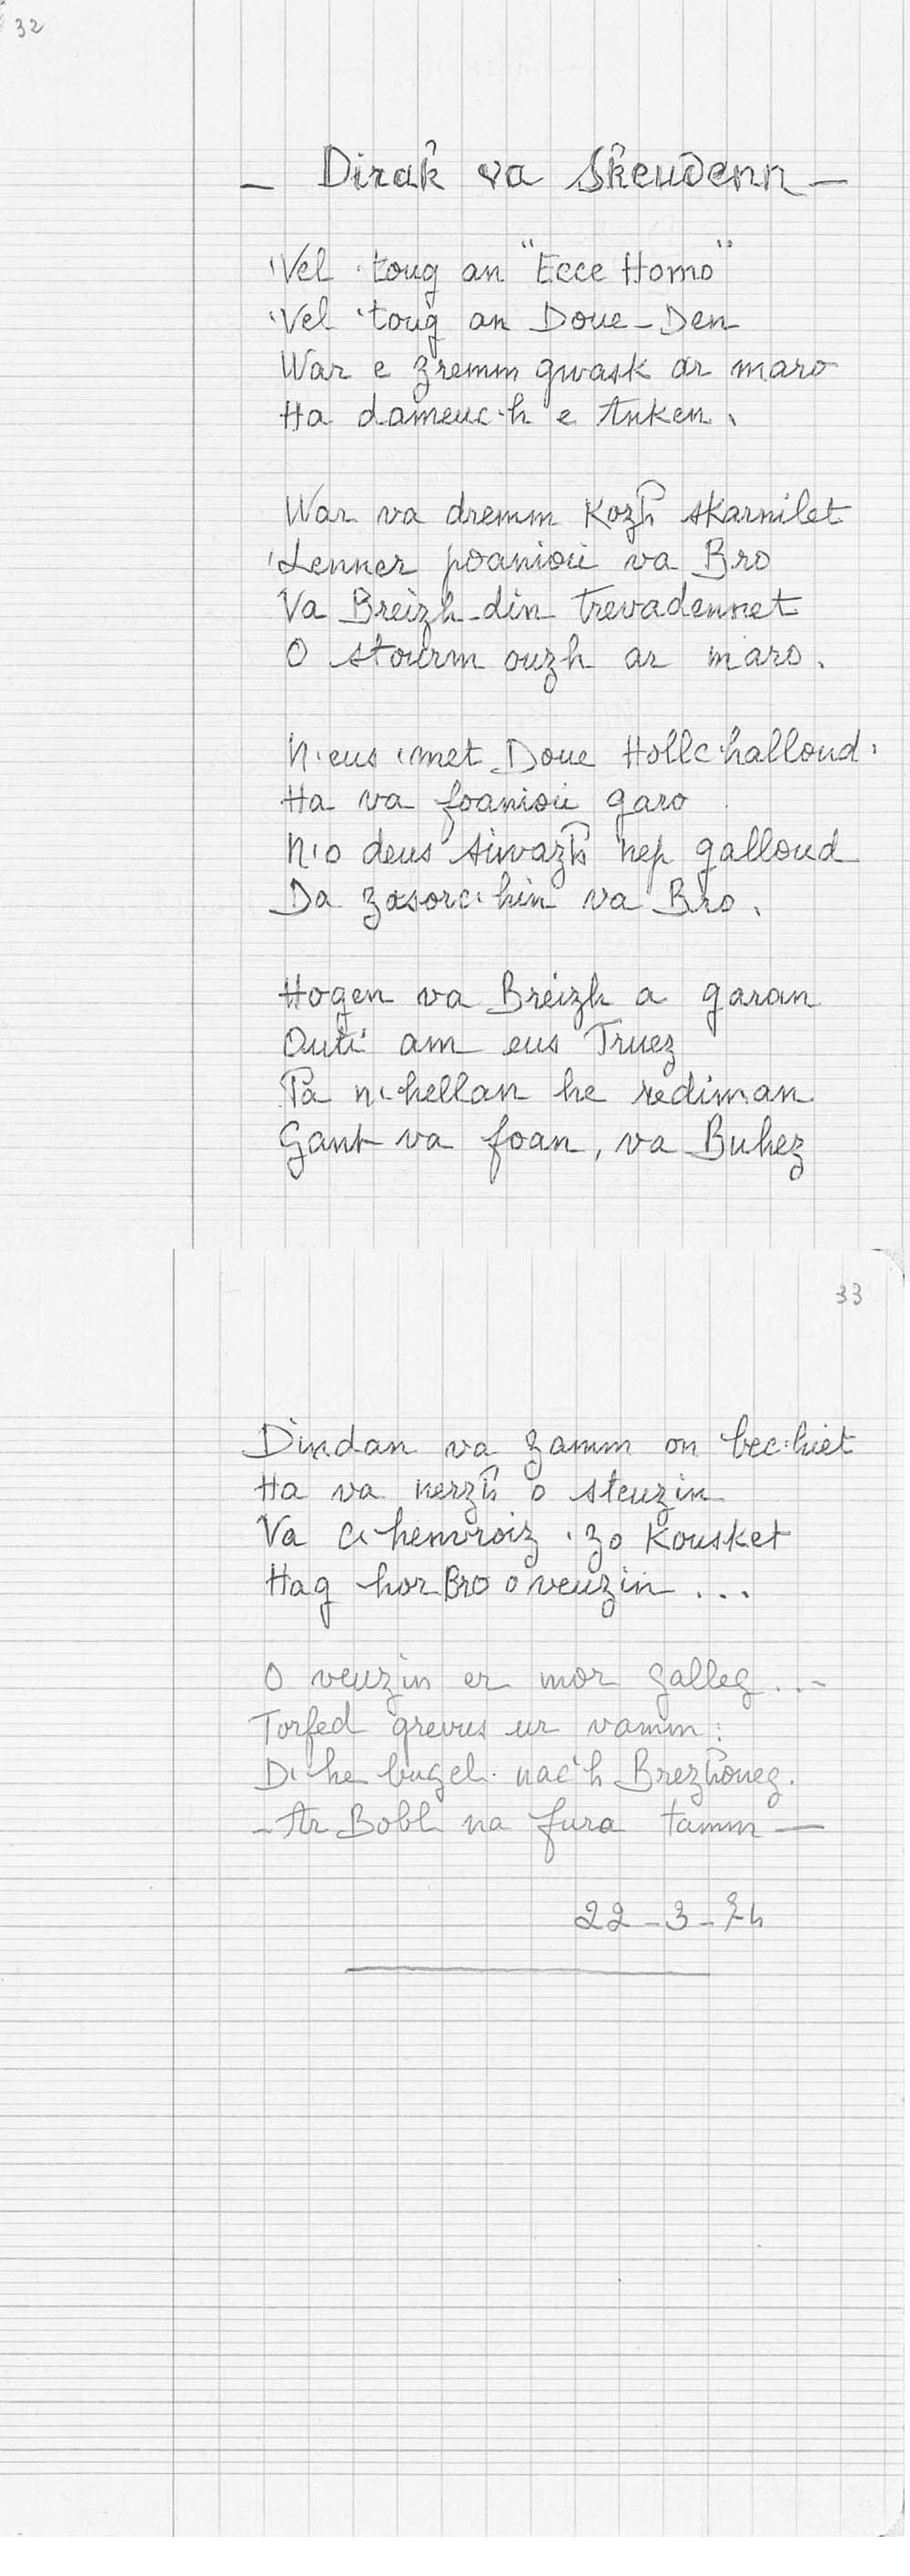 32
- Dirak va Skeudenn -
'Vel 'toug an "Ecce Homo"
'Vel 'toug an Doue-Den
War e zremm gwask ar maro
Ha dameuc'h e Anken.
War va dremm Kozh skarnilet
'Lenner poaniou va Bro
Va Breizh-din Trevadennet
O stourm ouzh ar maro.
N'eus 'met Doue Hollc'halloud.
Ha va foaniou garo
N'o deus siwazh nep galloud
Da zasorc'hin va Bro.
Hogen va Breizh a garan
Outi am eus Truez
Pa n'hellan he rediman
Gant va foan, va Buhez
33
Dindan va zamm on bec'hiet
Ha va nerzh o steuzin
Va C'henvroiz 'zo Kousket
Hag hor Bro o veuzin ...
O veuzin er mor galleg...
Torfed grevus ur vamm:
D'he bugel nac'h Brezhoneg.
- Ar Bobl na fura tamm -
22-3-74